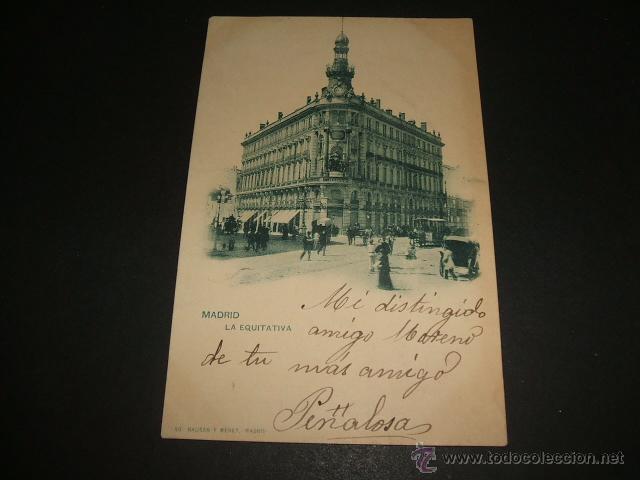 MADRID
LA EQUITATIVA
Mi distingido
amigo Moreno
de tu más amigo
Peñalosa
50 HAUSER Y MENET, MADRID
www.todocoleccion.net